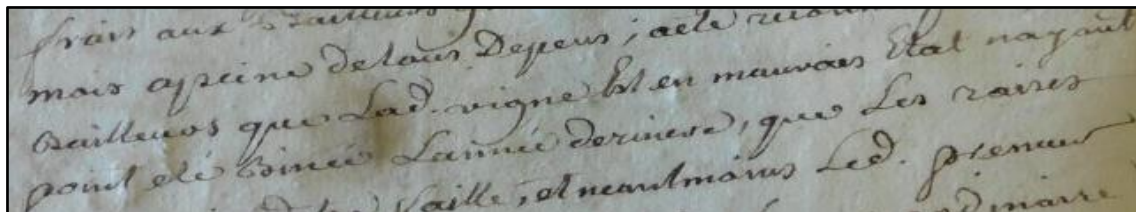 frais aux Bailleurs
mais apeine detous Depens; acte
Bailleurs que Lad. vigne Est en mauvais Etat nayant
point eté Binée Lannée derniere, que Les raises
taille, et neantmoins Led. preneur